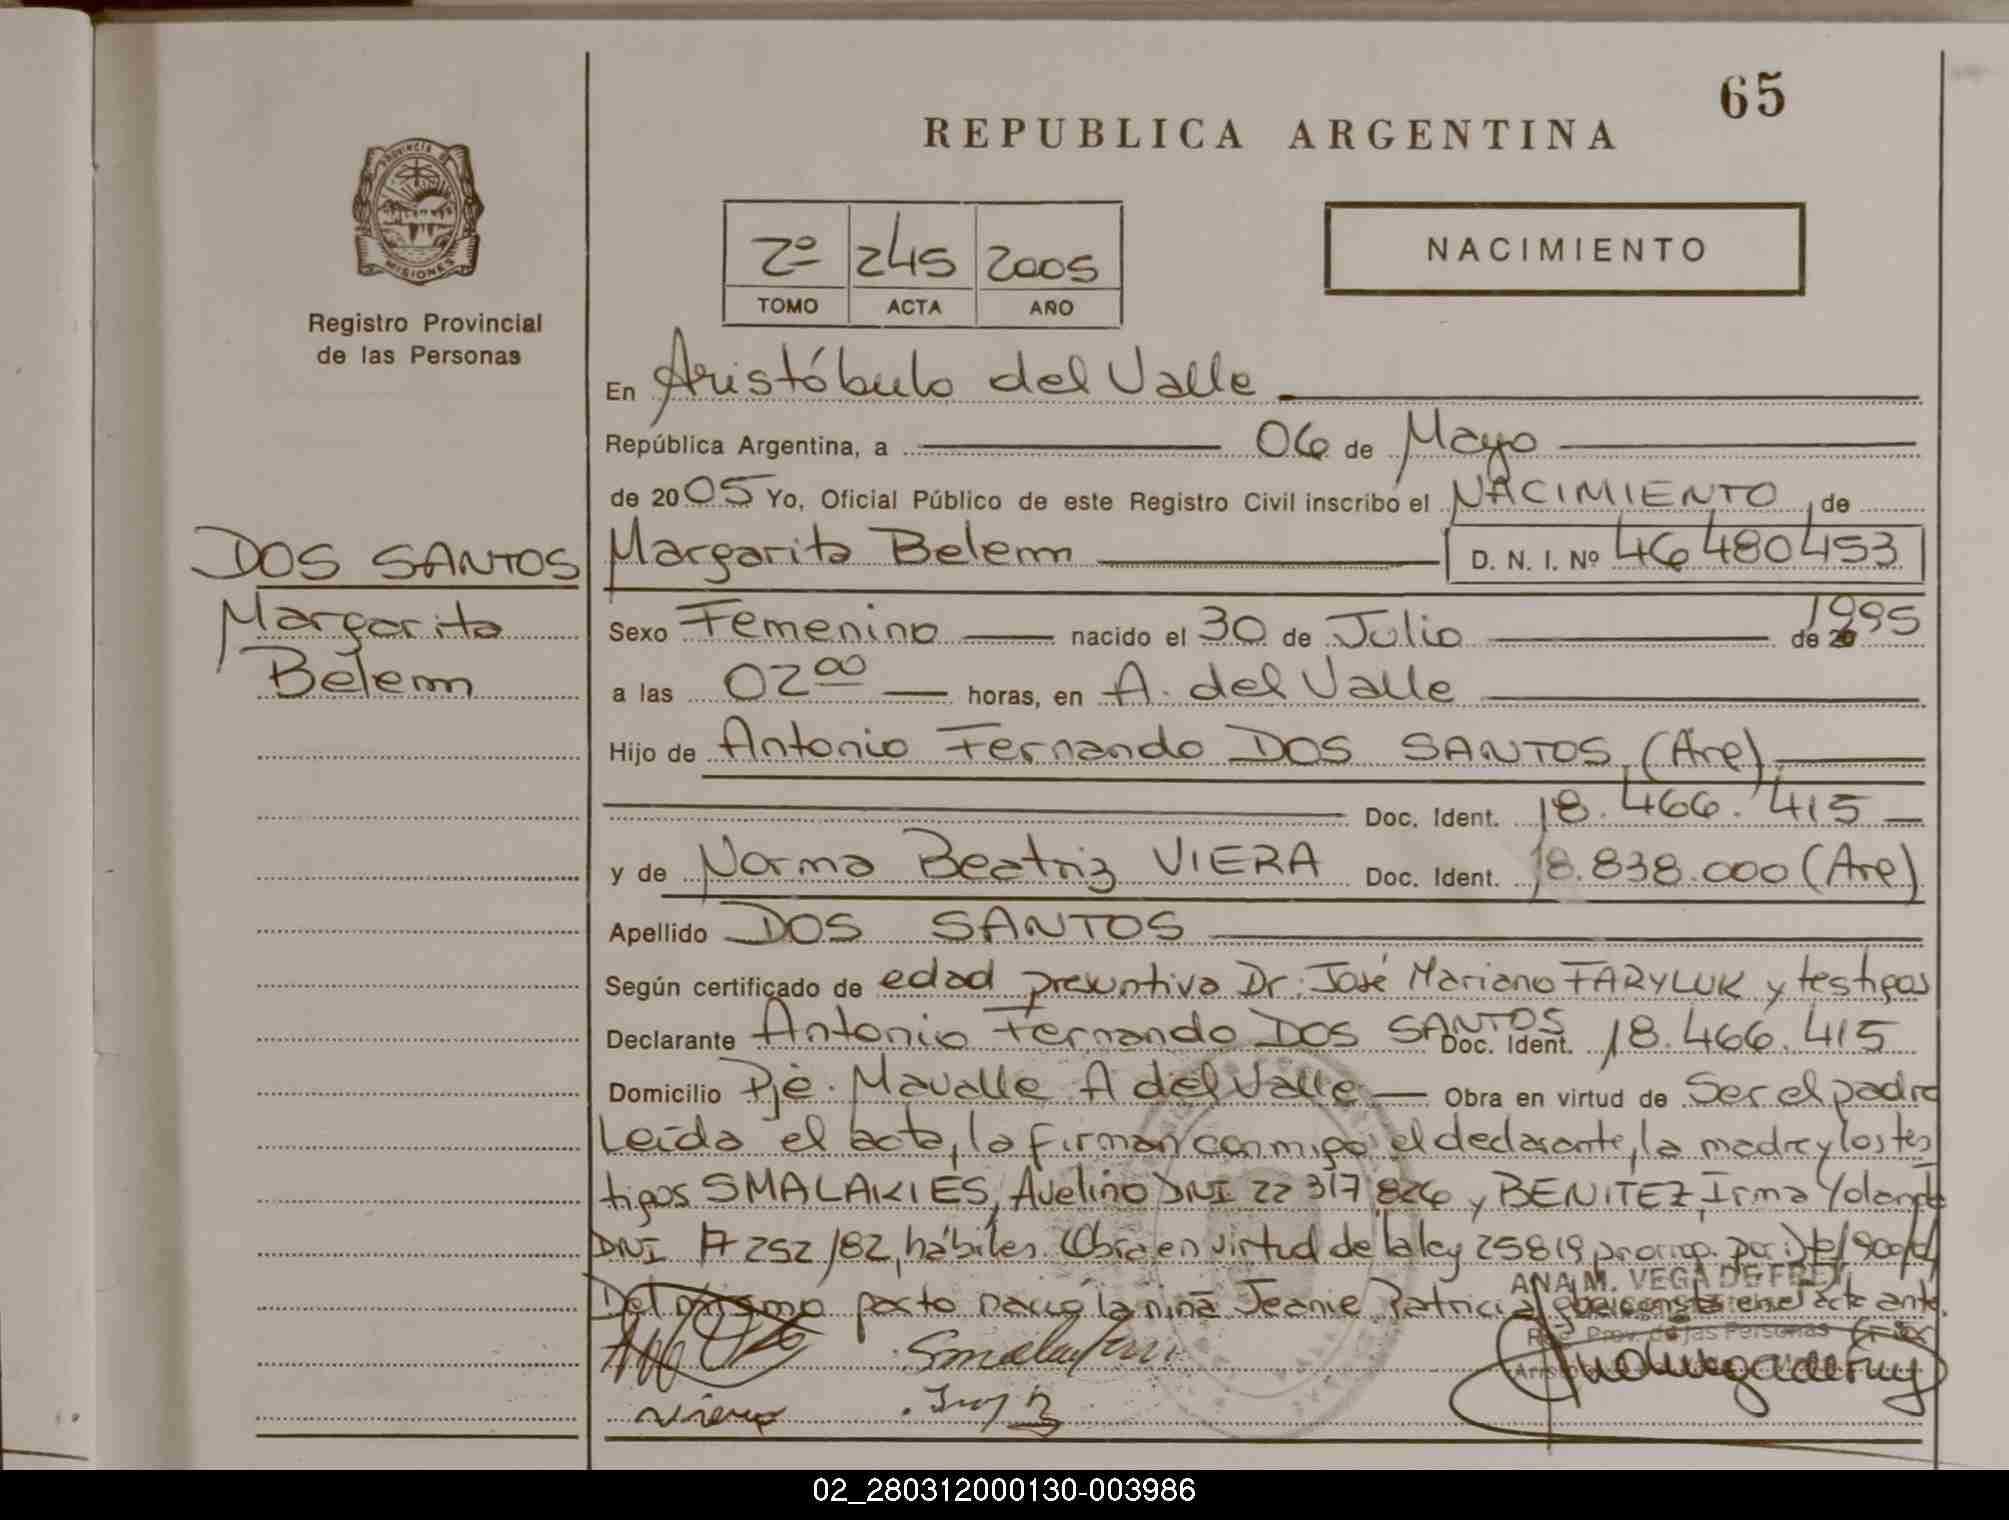 65
REPUBLICA ARGENTINA
PROVINCIA DE
MISIONES
Registro Provincial
de las Personas
2º 245 2005
TOMO ACTA AÑO
NACIMIENTO
En Aristóbulo del Valle
República Argentina, a 06 de Mayo
de 2005 Yo, Oficial Público de este Registro Civil inscribo el NACIMIENTO, de
DOS SANTOS
Margarita
Belem
Margarita Belem D. N. I. Nº 46480453
Sexo Femenino nacido el 30 de Julio de 20 1995
a las 02 00 horas, en A. del Valle
Hijo de Antonio Fernando DOS SANTOS, (Arg)
Doc. Ident. 18.466.415
y de Norma Beatriz VIERA Doc. Ident. 18.838.000 (Arg)
Apellido DOS SANTOS
Según certificado de edad presuntiva Dr. José Mariano FARYLUK y testigos
Declarante Antonio Fernando DOS SANTOS Doc. Ident. 18.466.415
Domicilio Pje. Mavalle A del Valle Obra en virtud de Ser el padre
Leída el acta, la firman conmigo el declarante, la madre y los tes
tigos SMALAKIES, Avelino DNI 22 317 826 y BENITEZ, Irma Yolanda
DNI 252 182, hábiles. Obra en virtud de la ley 25819 prorrog. por
Del mismo parto nació la niña Jeanie Patricia consta en el acta ante
ANA M. VEGA DE
Reg. Prov. de las Personas
Viera
02_280312000130-003986